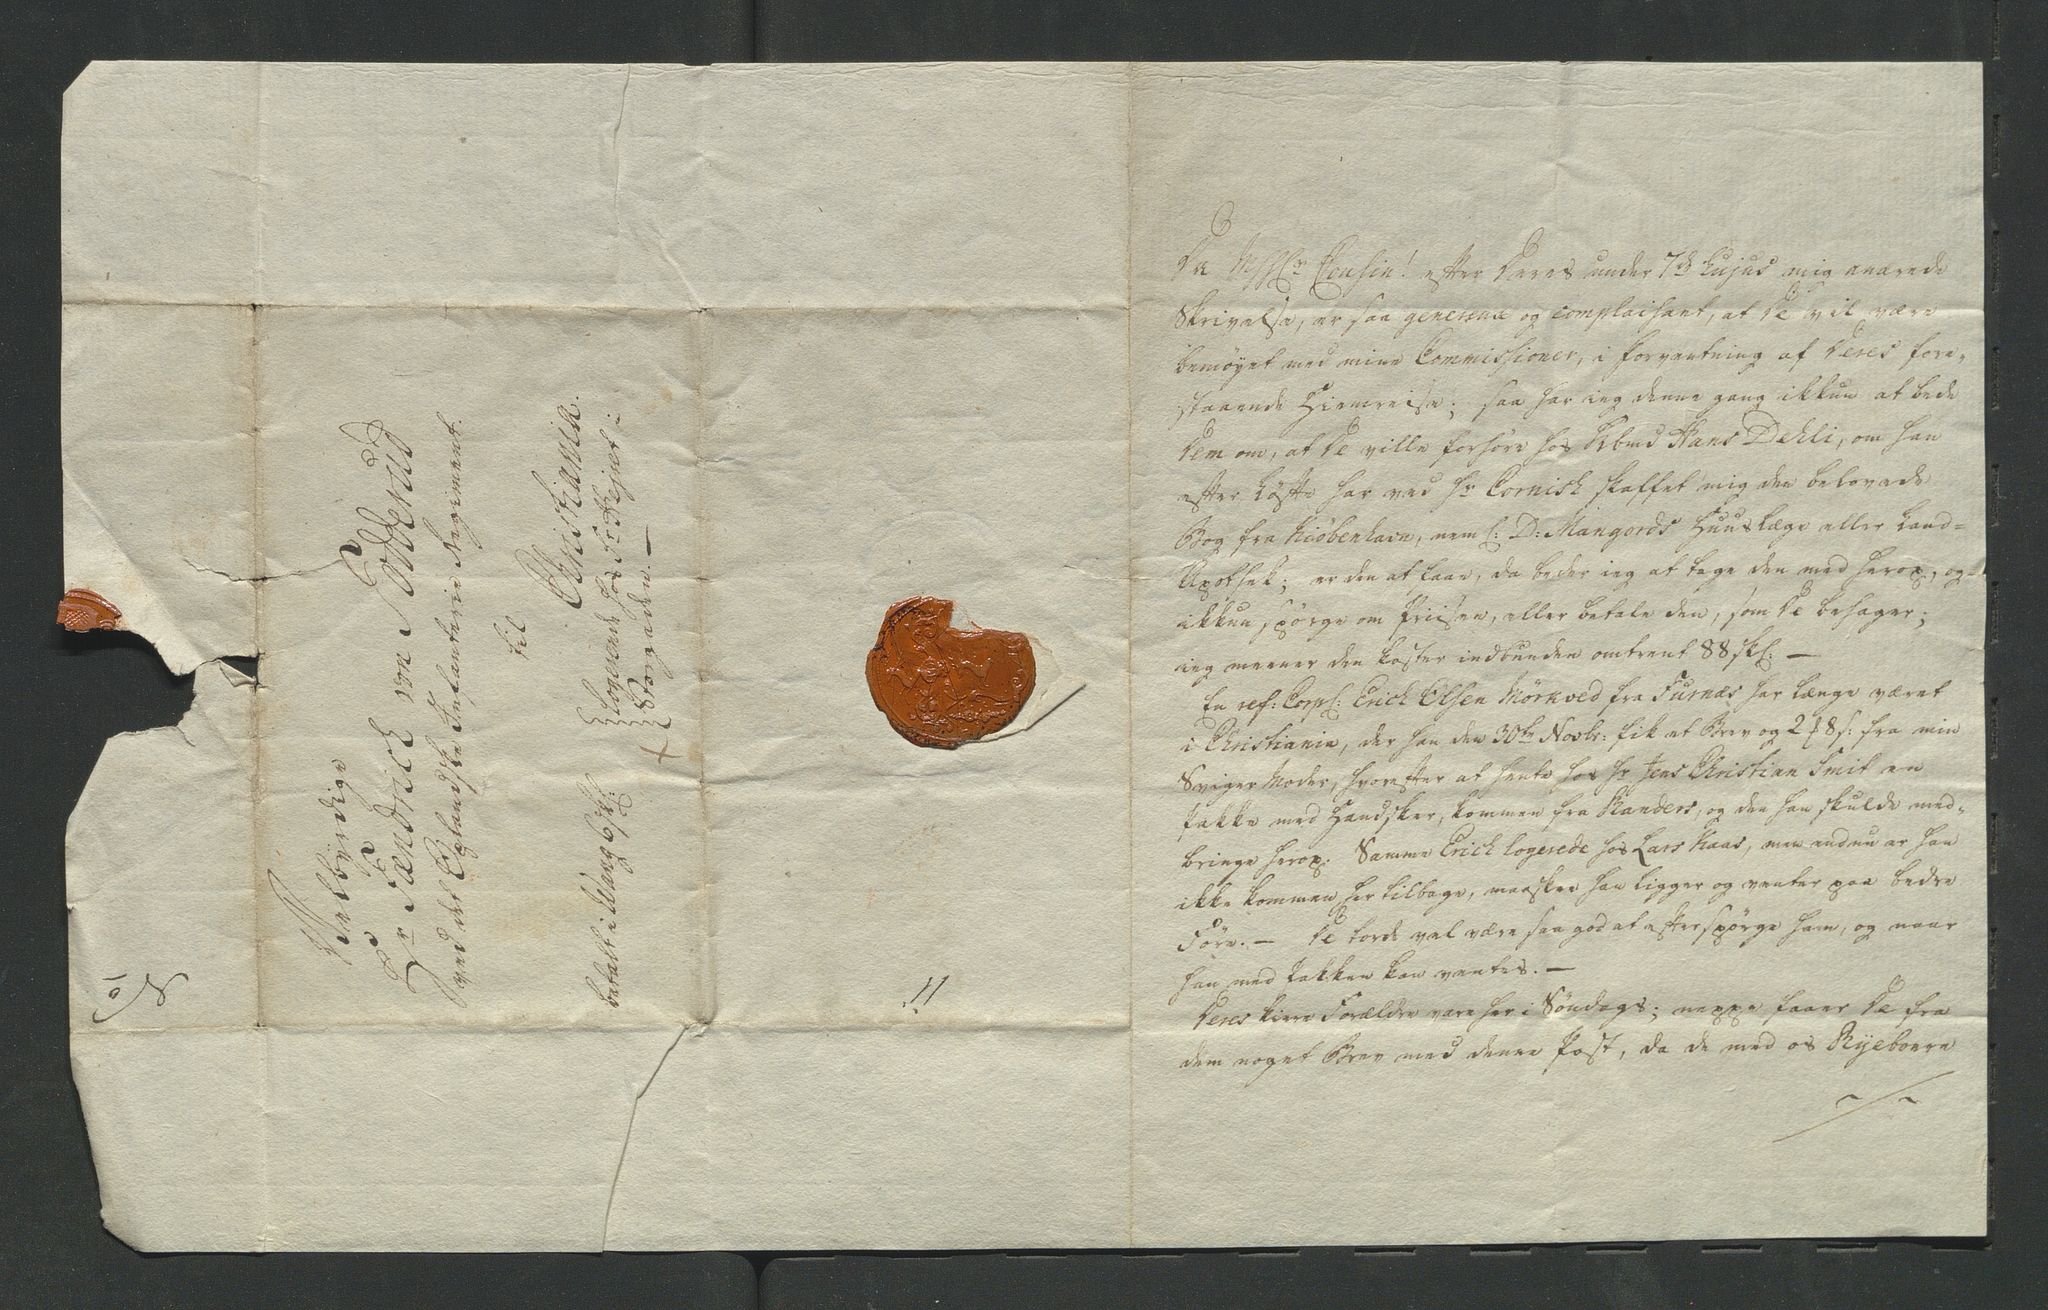 Velbyrdige
Hr Fændrich von Todderud
ved det Oplandske Infanterie Regiment.
til
Christiania.
Logerende hos Fr: Kejser i
Storgaden. —
betalt i Wang 6 sk:
No
11.
Da Hr Cousin! efter Deres under 7de hujus mig ærede
Skrivelse, er saa genereux og complaisant, at De vil være
bemöyet med mine Commissioner, i Forventning af Deres fore-
staaende Hiemreise; saa har ieg denne gang ikkun at bede
Dem om, at De ville forhöre hos Kbmd Hans Dehli, om han
efter Löfte har ved Hr Cornisk skaffet mig den belovede
Bog fra Kiöbenhavn, neml: D: Mangords Huuslæge eller Land-
Apothek; er den at faae, da beder ieg at tage den med herop, og
ikkun spörge om Priisen, eller betale den, som De behager;
ieg meener den koster indbunden omtrent 88 sk: —
En ref: Corpl: Erich Olsen Mörkved fra Furnæs har længe været
i Christiania, der han den 30te Novbr: fik et Brev og 2 8 s: fra min
Sviger Moder, hvorefter at hente hos Hr Jens Christian Smit en
Pakke med Handsker, kommen fra Randers, og den han skulde med-
bringe herop. Samme Erich logerede hos Lars Kaas, men endnu er han
ikke kommen her tilbage, maaskee han ligger og venter paa bedre
Före. — De torde vel være saa god at efterspörge ham, og naar
han med Pakken kan ventes. —
Deres kiere Forældre vare her i Söndags; neppe faaer De fra
dem noget Brev med denne Post, da de med os Ryeboere